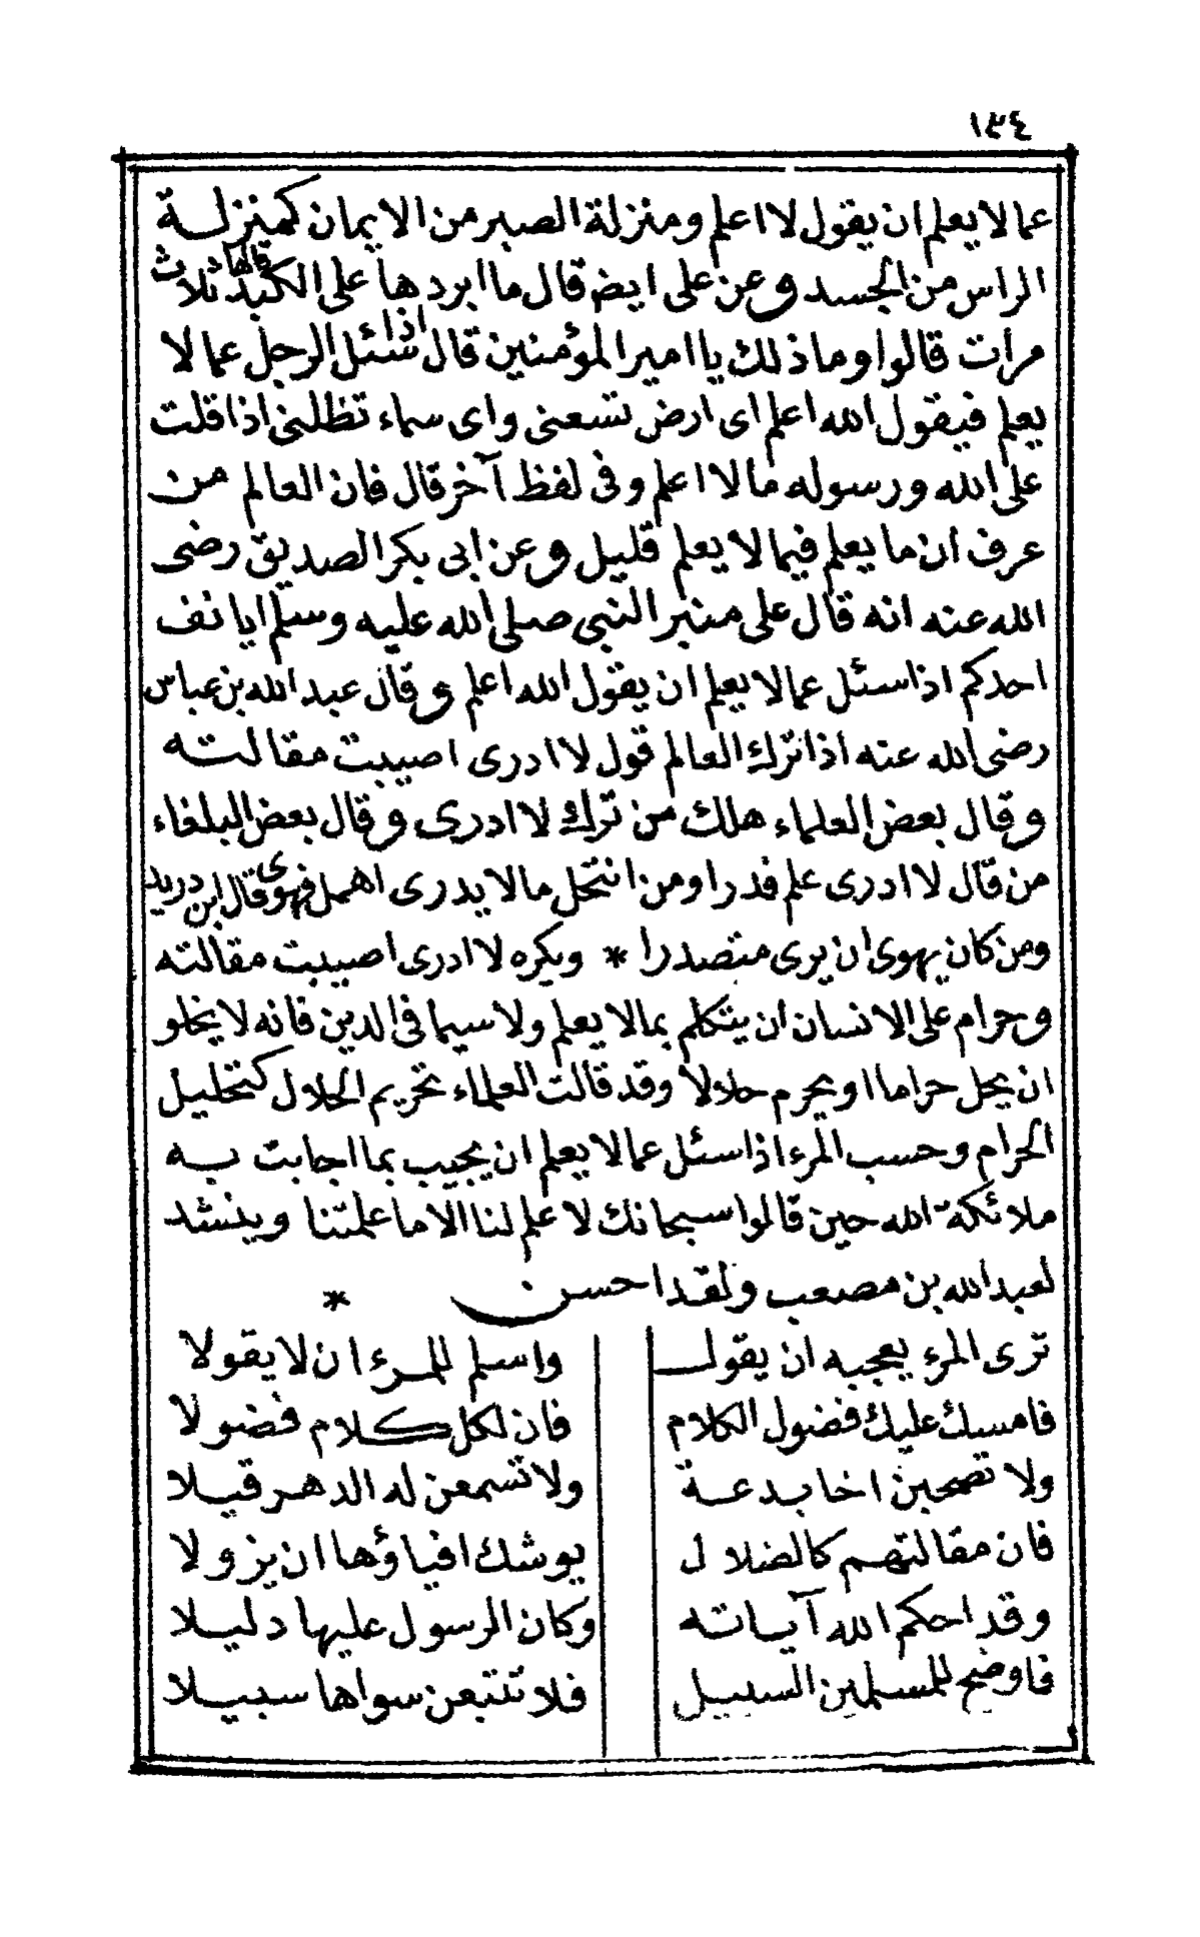 ١٣٤
عما لا يعلم ان يقول لا اعلم ومنزلة الصبر من الايمان كمنزلـة
الراس من الجسد وعن على ايض قال ما ابردها على الكبد قالها ثلاث
مرات قالوا وما ذلك يا امير المؤمنين قال اذا سئل الرجل عما لا
يعلم فيقول الله اعلم اى ارض تسعنى واى سماء تظلنى اذا قلت
على الله ورسوله ما لا اعلم وفى لفظ آخر قال فان العالم من
عرف ان ما يعلم فيما لا يعلم قليل وعن ابى بكر الصديق رضى
الله عنه انه قال على منبر النبى صلى الله عليه وسلم ايانف
احدكم اذا سئل عما لا يعلم ان يقول الله اعلم وقال عبد الله بن عباس
رضى الله عنه اذا ترك العالم قول لا ادرى اصيبت مقالته
وقال بعض العلماء هلك من ترك لا ادرى وقال بعض البلغاء
من قال لا ادرى علم فدرا ومن انتحل ما لا يدرى اهمل فهوى قال ابن دريد
ومن كان يهوى ان يرى متصدرا * ويكره لا ادرى اصيبت مقالته
وحرام على الانسان ان يتكلم بما لا يعلم ولا سيما فى الدين فانه لا يخلو
ان يحل حراما او يحرم حلالا وقد قالت العلماء تحريم الحلال كتحليل
الحرام وحسب المرء اذا سئل عما لا يعلم ان يجيب بما اجابت بـه
ملائكة الله حين قالوا سبحانك لا علم لنا الا ما علمتنا وينشد
لعبد الله بن مصعب ولقد احسن *
ترى المرء يعجبه ان يقول واسلم للمرء ان لا يقولا
فامسك عليك فضول الكلام فان لكل كلام فضولا
ولا تصحبن اخا بدعـة ولا تسمعن له الدهر قيلا
فان مقالتهم كالضلال يوشك افياؤها ان يزولا
وقد احكم الله آياته وكان الرسول عليها دليلا
فاوضح للمسلمين السبيل فلا تتبعن سواها سبيلا